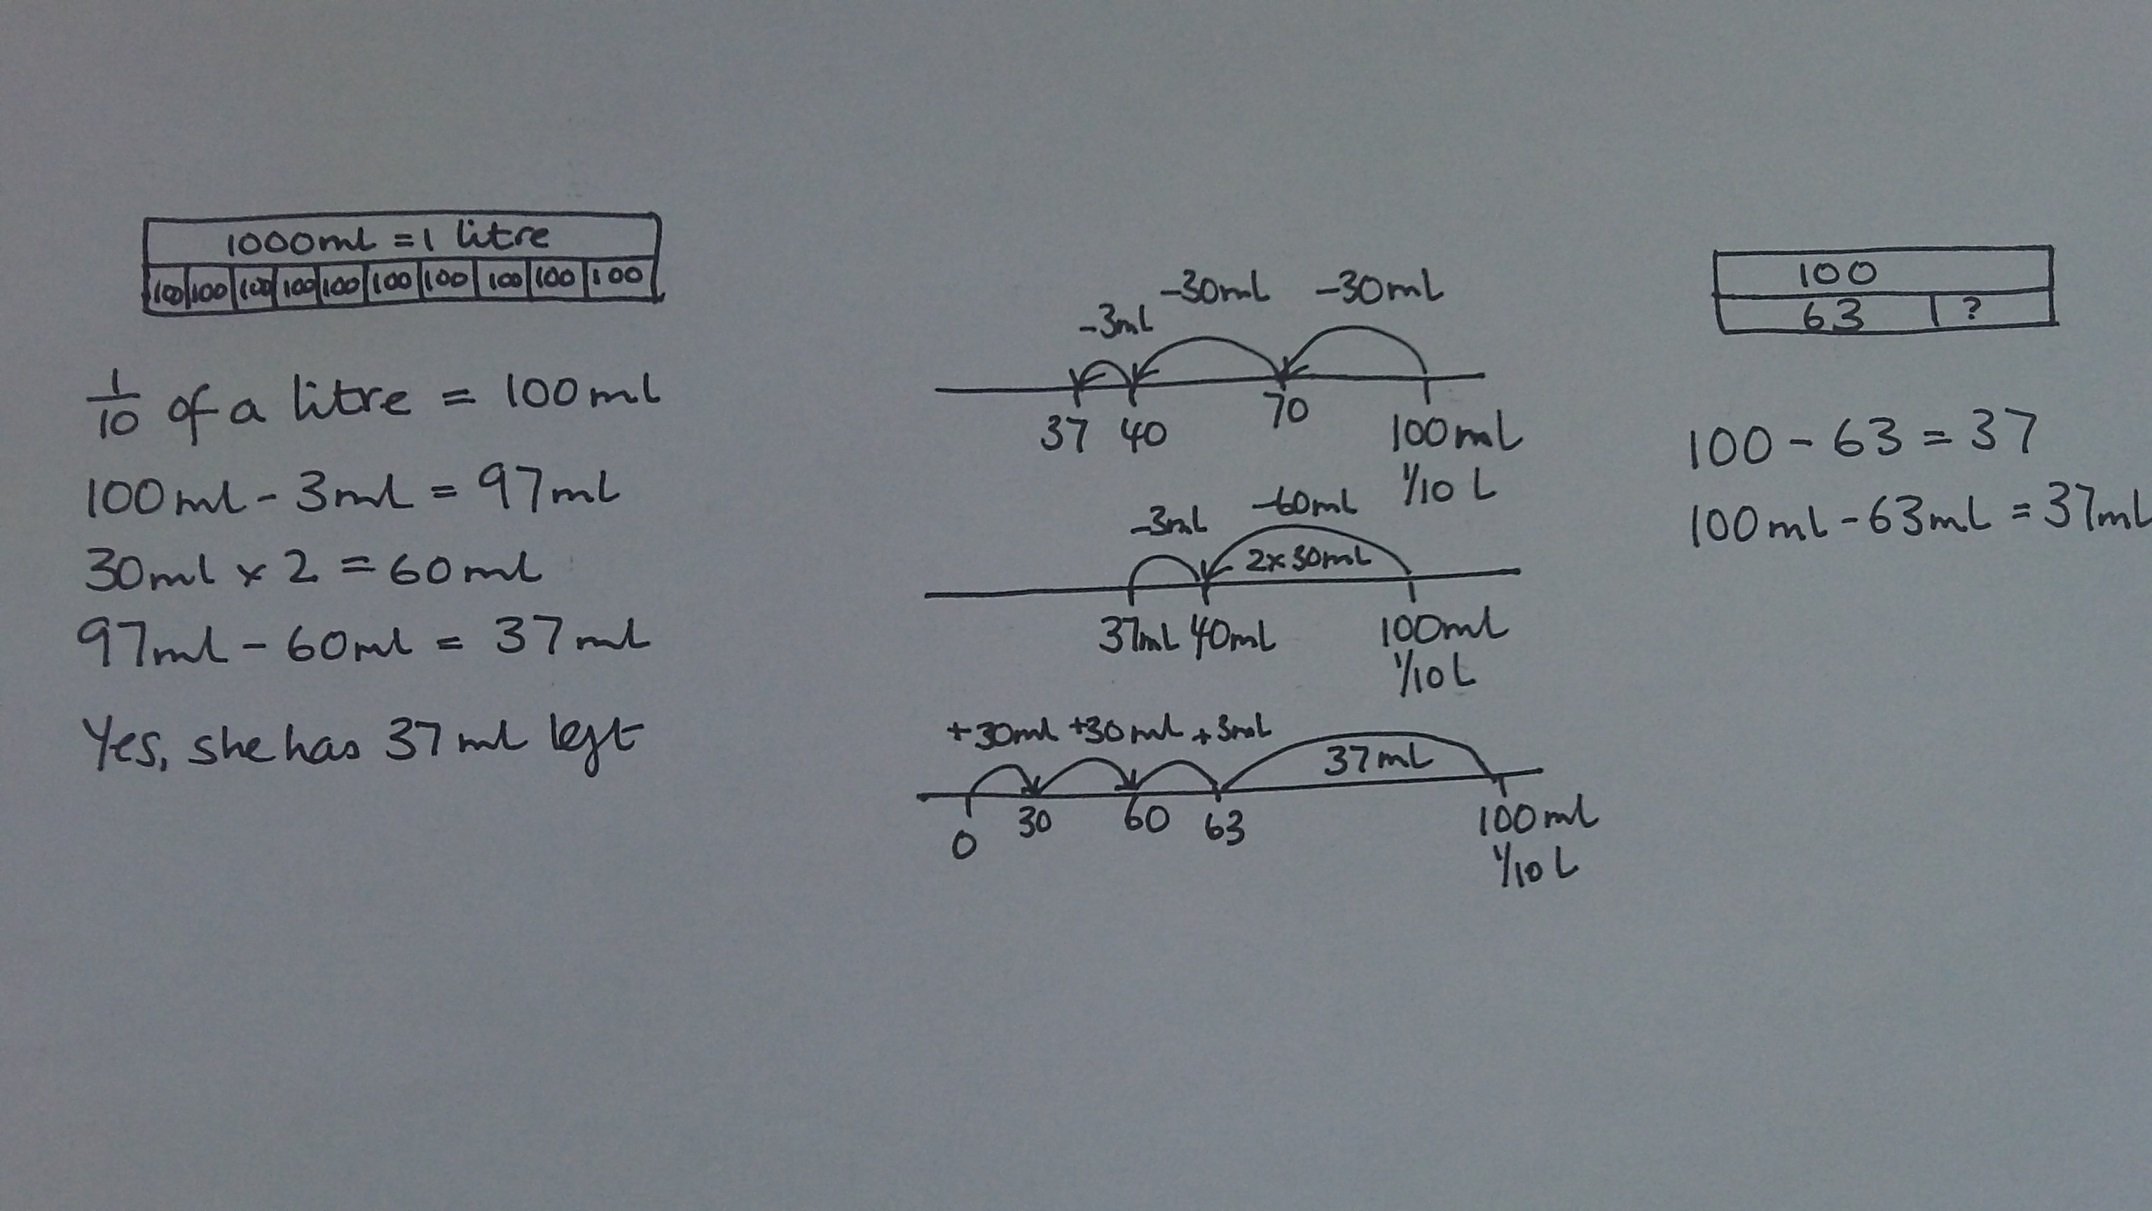 1000ml = 1 litre
100 100 100 100 100 100 100 100 100 100
1/10 of a litre = 100ml
100ml - 3ml = 97ml
30ml x 2 = 60ml
97ml - 60ml = 37ml
Yes, she has 37ml left
-3ml -30ml -30ml
37 40 70 100ml
1/10 L
-3ml -60ml
2x30ml
37ml 40ml 100ml
1/10 L
+30ml +30ml +3ml
37ml
0 30 60 63 100ml
1/10 L
100
63 ?
100 - 63 = 37
100ml - 63ml = 37ml